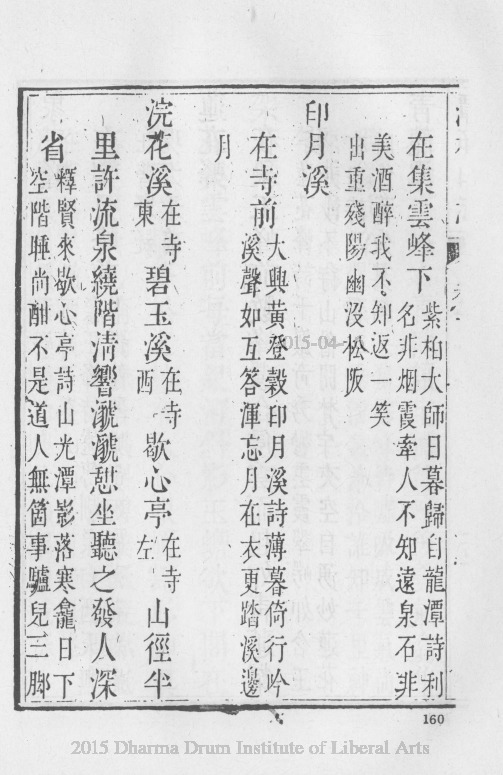 在集雲峰下
紫柏大師日暮歸自龍潭詩利
名非烟霞牽人不知遠泉石非
美酒醉我不知返一笑
出重殘陽幽沒松阪
印月溪
在寺前
大興黃登穀印月溪詩薄暮倚行吟
溪聲如互答渾忘月在衣更踏溪邊
月
浣花溪在寺東碧玉溪在寺西歇心亭在寺左山徑半
里許流泉繞階淸響㶁㶁憇坐聽之發人深
省
釋賢來歇心亭詩山光潭影落寒龕日下
空階睡尚酣不是道人無箇事驢兒三脚
160
2015-04-
2015 Dharma Drum Institute of Liberal Arts